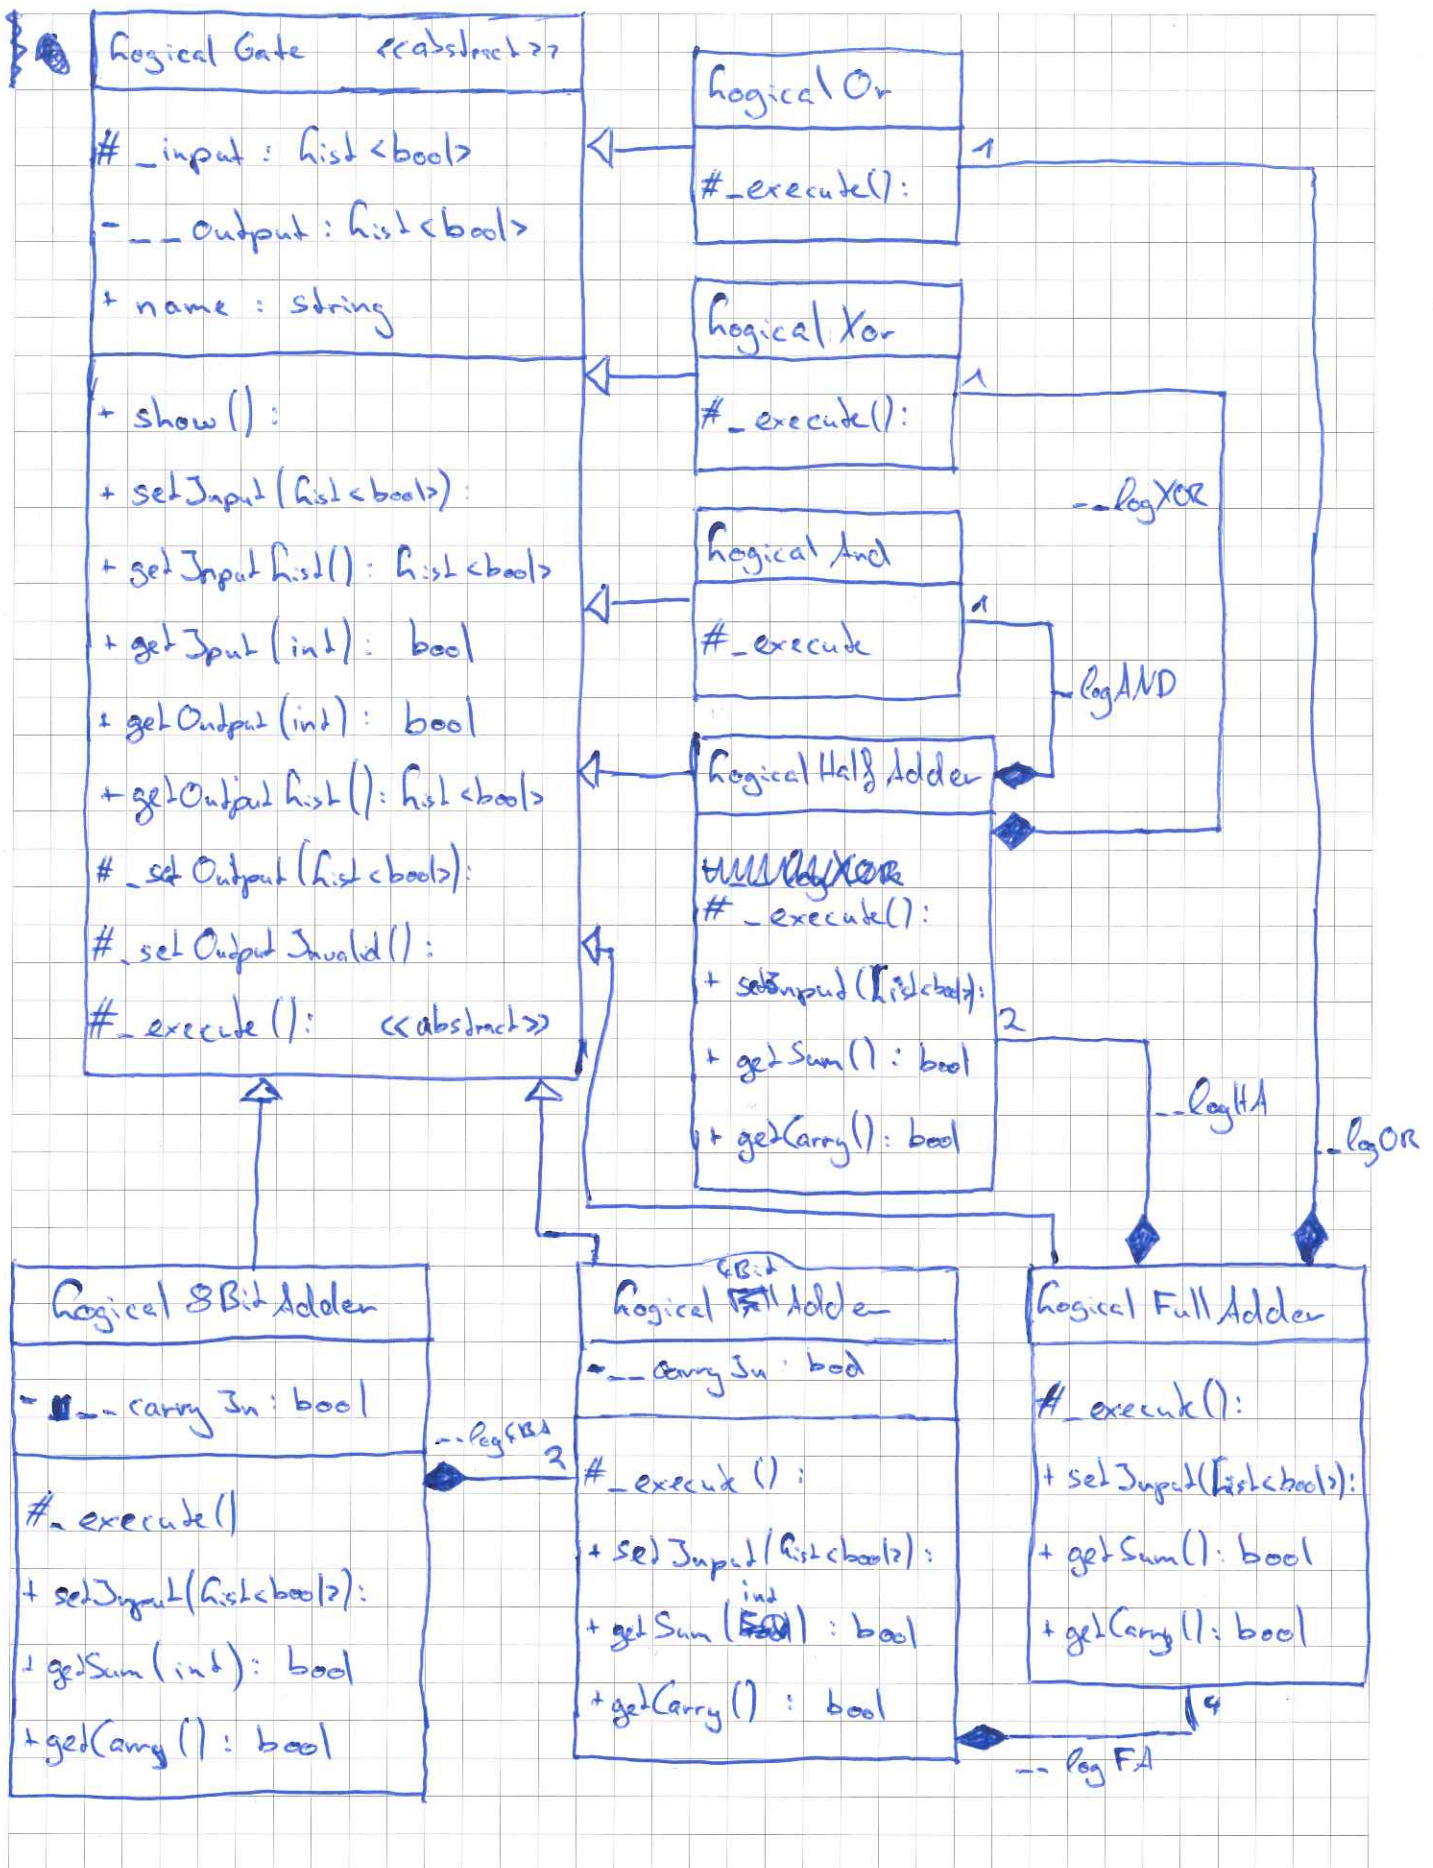 Logical Gate <<abstract>>
# _input : List <bool>
- __output : List <bool>
+ name : string
+ show() :
+ setInput(List<bool>) :
+ getInputList() : List <bool>
+ getIput (int) : bool
+ getOutput (int) : bool
+ getOutputList() : List <bool>
# _setOutput (List <bool>) :
# _setOutputInvalid() :
# _execute() : <<abstract>>
Logical Or
# _execute() :
1
Logical Xor
# _execute() :
1
__logXOR
Logical And
# _execute
1
__logAND
Logical Half Adder
# _execute() :
+ setInput (List<bool>) :
+ getSum() : bool
+ getCarry() : bool
2
__logHA
__logOR
Logical 8Bit Adder
- __carryIn : bool
# _execute()
+ setInput(List<bool>) :
+ getSum (int) : bool
+ getCarry () : bool
__log4BA
2
4Bit
Logical Adder
- __carryIn : bool
# _execute () :
+ setInput (List<bool>) :
int
+ getSum ( ) : bool
+ getCarry() : bool
Logical Full Adder
# _execute() :
+ setInput(List<bool>) :
+ getSum() : bool
+ getCarry() : bool
4
__logFA